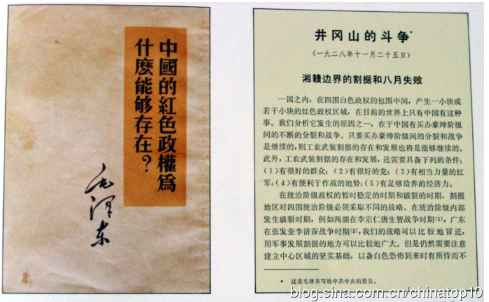 中國的紅色政權為
什麼能够存在？
毛泽东
井冈山的斗争*
（一九二八年十一月二十五日）
湘赣边界的割据和八月失败
一国之内，在四围白色政权的包围中间，产生一小块或
若干小块的红色政权区域，在目前的世界上只有中国有这种
事。我们分析它发生的原因之一，在于中国有买办豪绅阶级
间的不断的分裂和战争。只要买办豪绅阶级间的分裂和战争
是继续的，则工农武装割据的存在和发展也将是能够继续的。
此外，工农武装割据的存在和发展，还需要具备下列的条件：
（1）有很好的群众；（2）有很好的党；（3）有相当力量的红
军；（4）有便利于作战的地势；（5）有足够给养的经济力。
在统治阶级政权的暂时稳定的时期和破裂的时期，割据
地区对四围统治阶级必须采取不同的战略。在统治阶级内部
发生破裂时期，例如两湖在李宗仁唐生智战争时期〔1〕，广东
在张发奎李济深战争时期〔2〕，我们的战略可以比较地冒进，
用军事发展割据的地方可以比较地广大。但是仍然需要注意
建立中心区域的坚实基础，以备白色恐怖到来时有所恃而不
* 这是毛泽东写给中共中央的报告。
blog.sina.com.cn/chinatop10